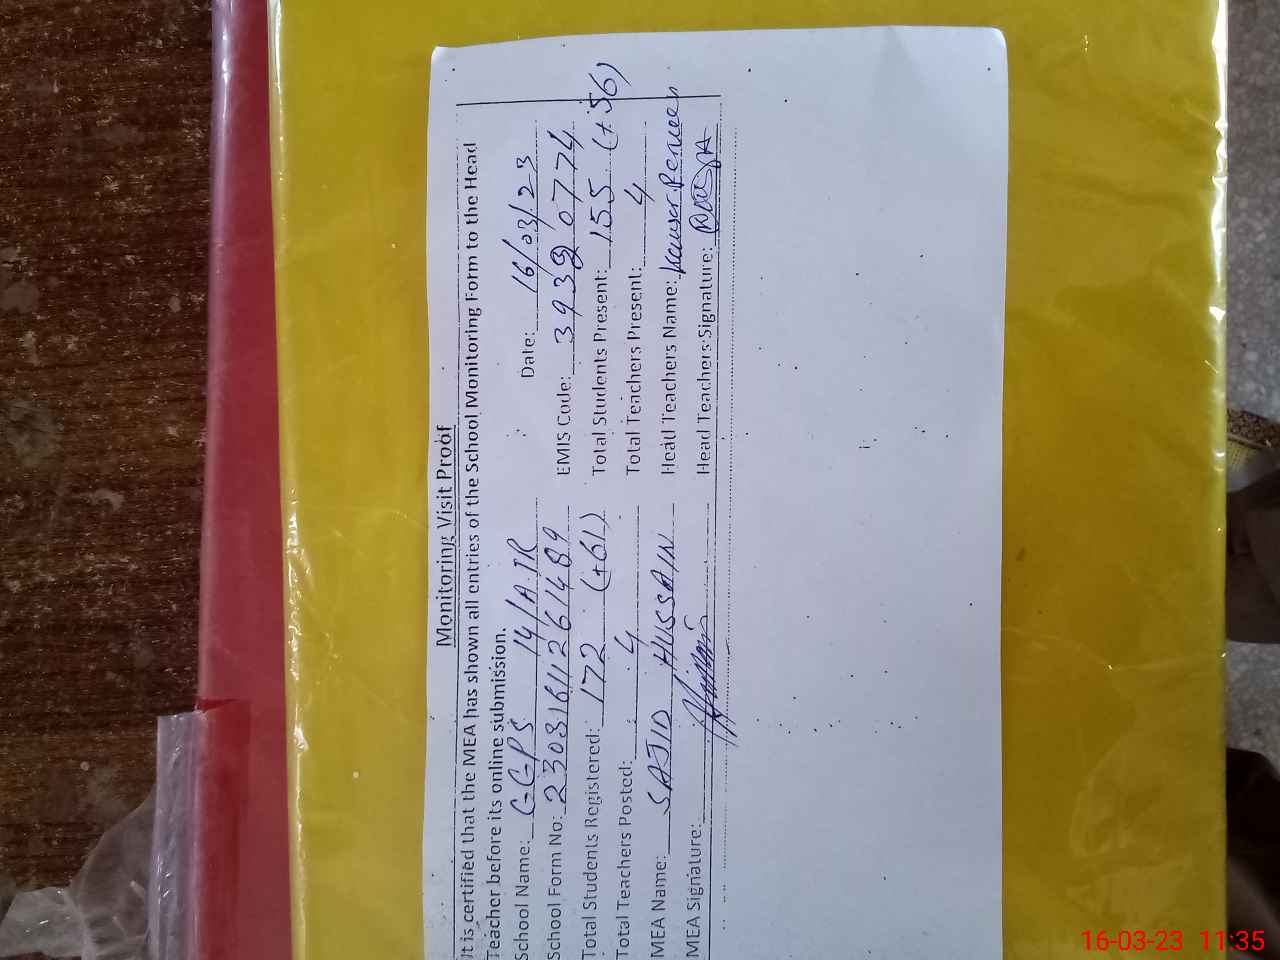 Monitoring Visit Proof
It is certified that the MEA has shown all entries of the School Monitoring Form to the Head
Teacher before its online submission.
School Name: GGPS 14/A.TR Date: 16/03/23
School Form No: 23031611261489 EMIS Code: 39320774
Total Students Registered: 172 (+61) Total Students Present: 155 (+56)
Total Teachers Posted: 4 Total Teachers Present: 4
MEA Name: SAJID HUSSAIN Head Teachers Name: Kausar Perveen
MEA Signature: Head Teachers Signature:
16-03-23 11:35